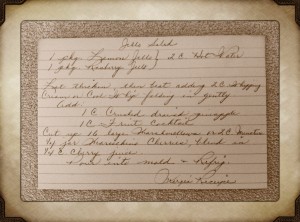 Jello Salad
1 pkg. Lemon Jello 2 C. Hot Water
1 pkg. Raspberry Jello
Let thicken, then beat adding 2 C Whipping
Cream or Cool Whip folding in gently
Add:
1 C Crushed drained pineapple
1 C. Fruit Cocktail
Cut up 16 large Marshmallows or 2 C miniature
1/4 jar Maraschino Cherries, blend in
1/4 C Cherry juice
Pour into mold & Refrig.
Margie Recipe